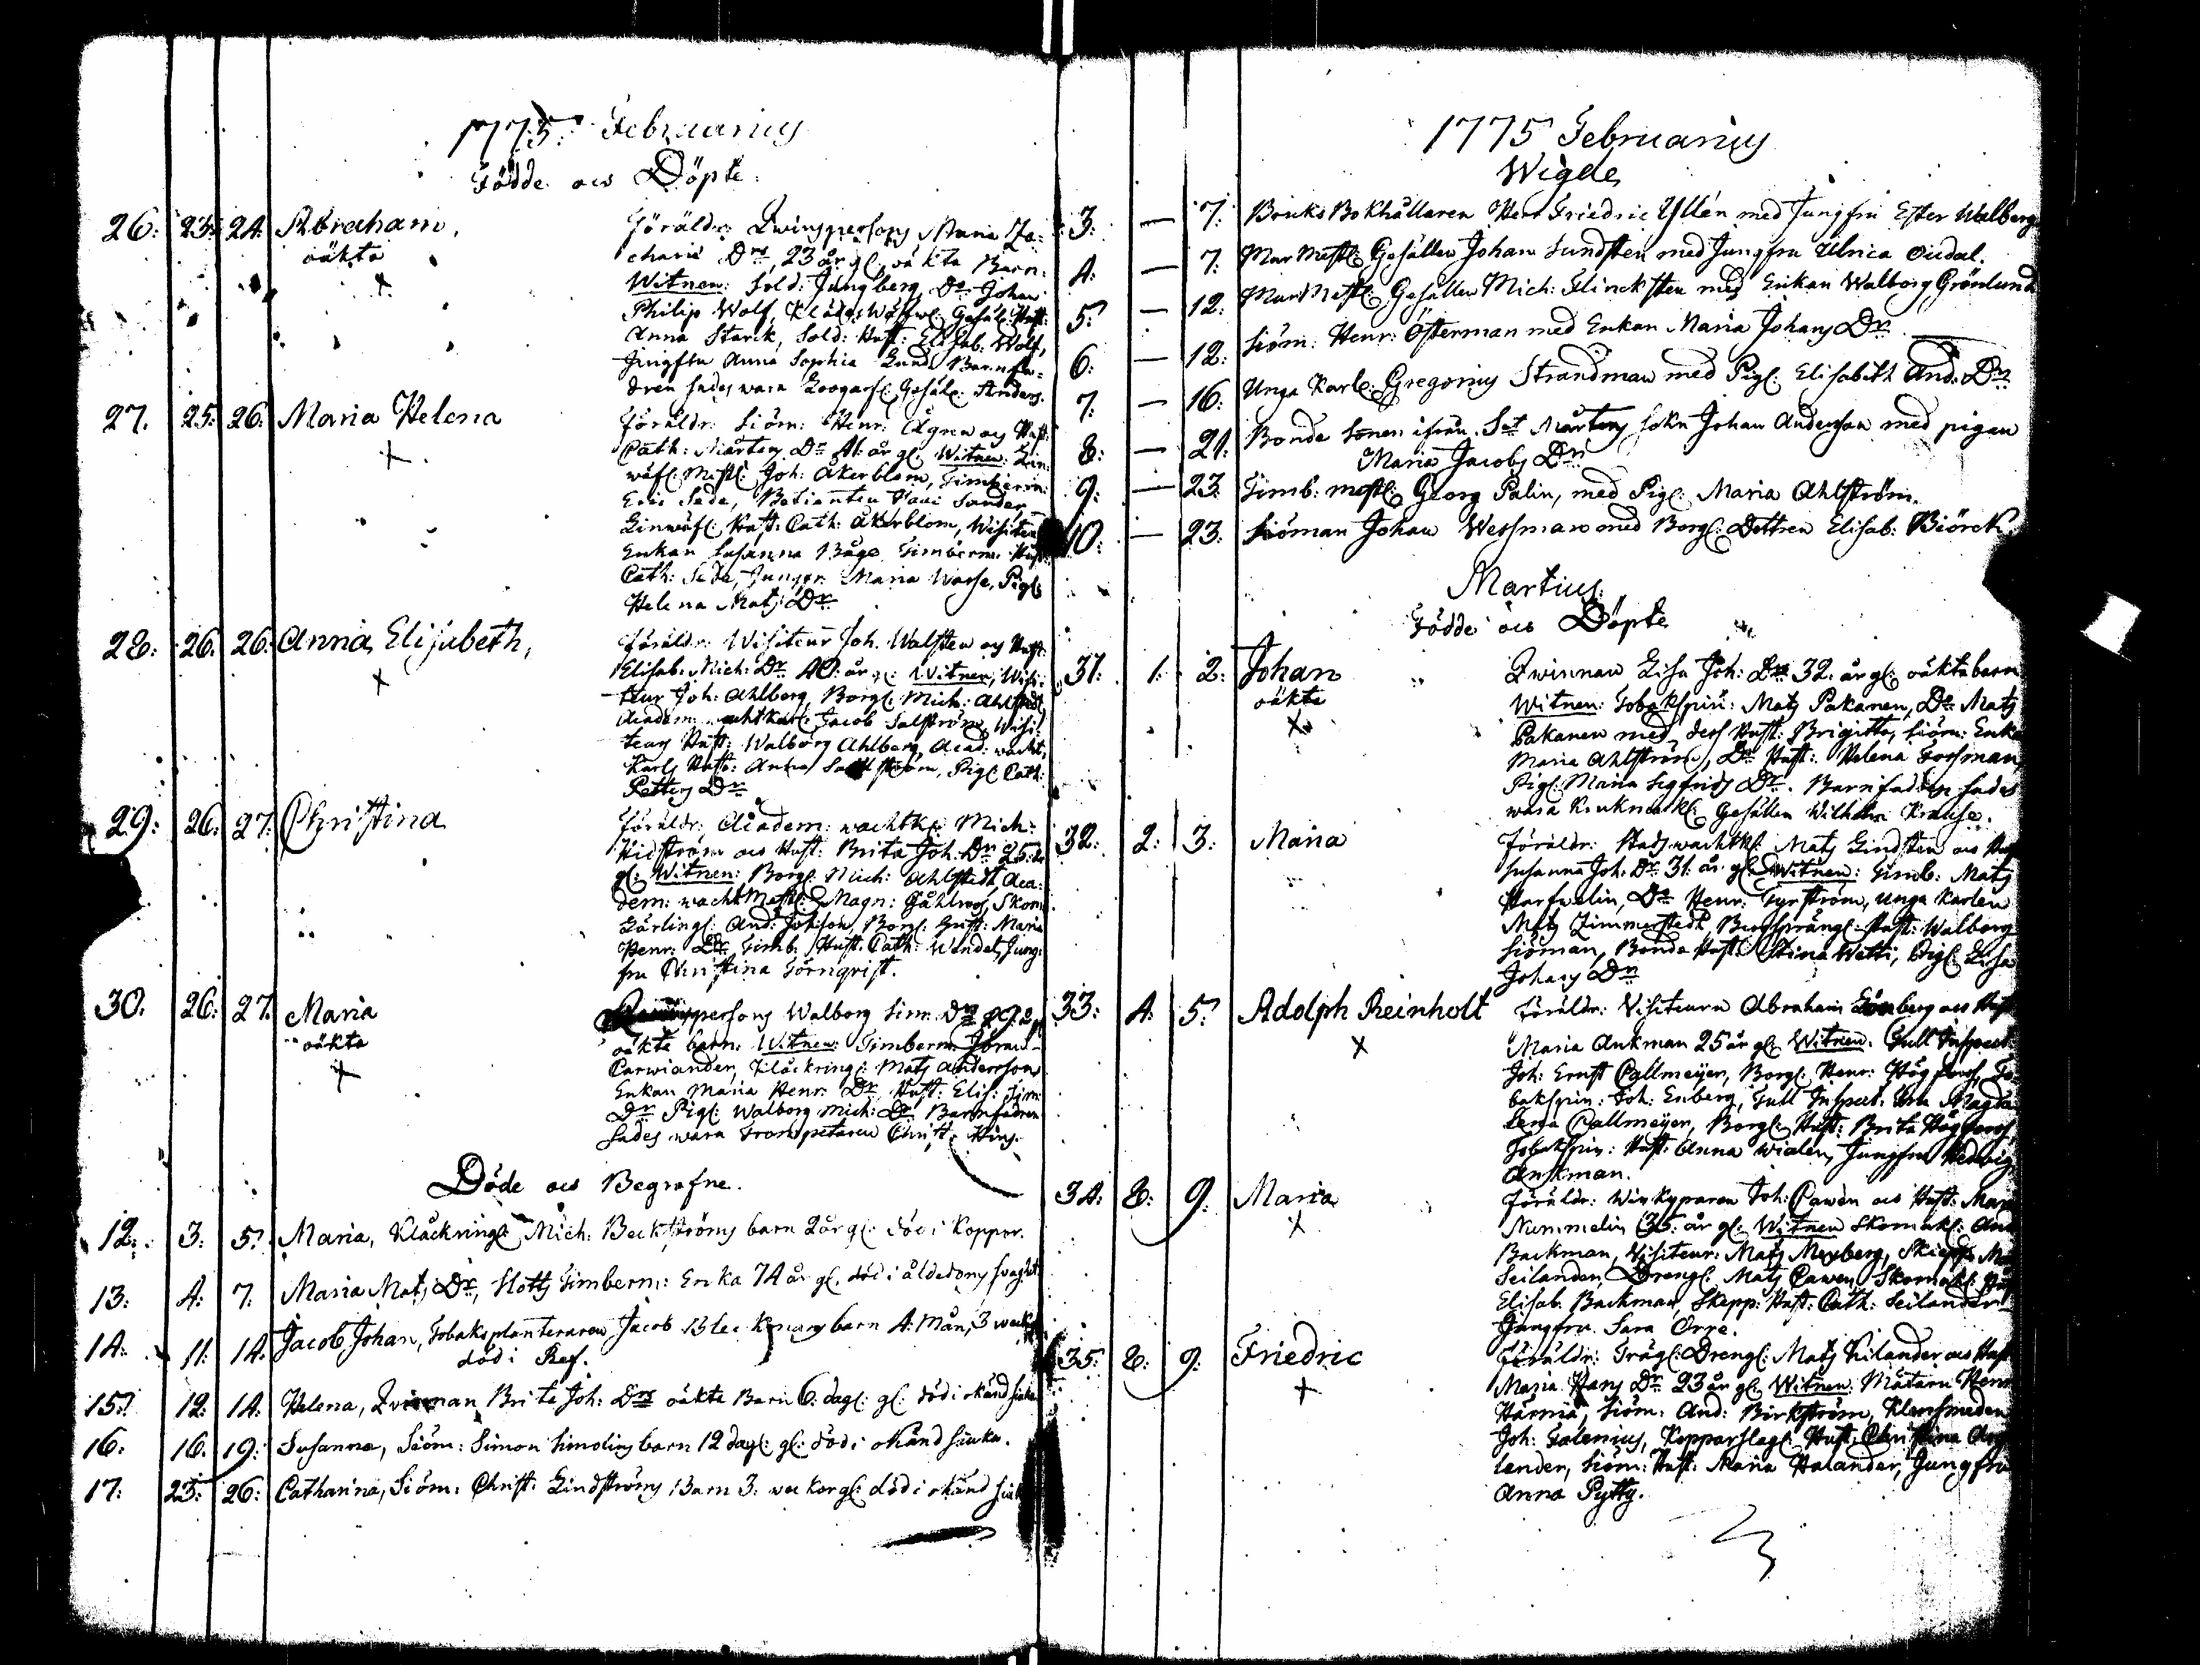 1775: Februarius
Födde och Döpte:
26: 23: 24: Abraham,
oäkta
Föräldr: Qwinspersons Maria Za-
charie Drs, 23 år gl: oäkta Barn:
Witnen: Sold: Jungberg, Do Johan
Philip Wolf, Gesäl: Hust:
Anna Starck, Sold: Hust: Elisab: Wolf,
Jungfru Anna Sophia Lund Barnfa-
dren sades wara Gesäl: Anders.
27. 25: 26: Maria Helena
Föräldr: Siöm: Henr: Ågren och Hust:
Cath: Mårtens Dr 41 år gl: Witnen: Lin-
wäf: Mest: Joh: Åkerblom, Timberm:
Eric Sede, Betienten
Linwäf: Hust: Cath: Åkerblom, Wisiteur
Enkan Susanna Båge Timberm: Hust:
Cath: Sede, Jungfr: Maria Pigl:
Helena Mats Dr
28: 26: 26: Anna Elisabeth,
Föräldr: Wisiteur Joh. Walsten och Hust:
Elisab: Mich: Dr 40: år gl: Witnen, Wisi-
teur Joh: Ahlberg, Borgl: Mich: Ahlstedt,
Academ: wachtkarl: Jacob Salström, Wisi-
teurs Hust: Walborg Ahlberg, Acad: wacht-
Karls Hust: Anna Pigl: Cath:
Petters Dr
29: 26: 27: Christina
Föräldr: Academ: wachtk: Mich:
och Hust: Brita Joh: Dr 25: år
gl: Witnen: Borgl: Mich: Ahlstedt, Aca-
dem: wacht Mest: Magn: Skom:
Lärling: And: Borgl: Hust: Maria
Henr: Dr Timb: Hust: Cath: Jung-
fru Christina Törnqvist.
30. 26: 27: Maria
oäkta
persons Walborg Sim: Dr
oäkta barn: Witnen: Timberm:
Carwiander, Klåckring: Mats Andersson
Enkan Maria Henr: Dr Hust: Elis: Sim:
Dr Pigl: Walborg Mich: Dr, Barnfadren
Sades wara Trompetaren Christ:
Döde och Begrafne.
12: 3: 5: Maria, Klåckring: Mich: Beckströms barn 2 år gl: död i Koppor.
13: 4: 7: Maria Mats Dr, Slotts Timberm: Enka 74 år gl. död i ålderdoms svaghet
14: 11: 14: Jacob Johan, Tobaksplanteraren Jacob barn 4: Mån, 3 weck:
död i Ref.
15: 12: 14: Helena, Qvinnan Brita Joh: Drs oäkta Barn 6: dag: gl: död i okänd siuka
16: 16: 19: Susanna, Siöm: Simon Simolins barn 12 dag: gl: död i okänd siuka.
17: 23: 26: Catharina, Siöm: Christ: Lindströms Barn 3: weckor gl: död i okänd siuk
1775 Februarius
Wigde
3: — 7: Bruks Bokhållaren Herr Friedric Yllén med Jungfru Ester Walberg
4: — 7: Mur Mest: Gesällen Johan Sundsten med Jungfru Ulrica
5: — 12: Mur Mest: Gesällen Mich: Flincksten med Enkan Walborg Grönlund
6: — 12: Siöm: Henr: Österman med Enkan Maria Johans Dr
7: — 16: Unga Karl: Gregorius Strandman med Pigl: Elisabeth And: Dr
8: — 21: Bonde Sonen ifrån Sct Mårtens Sokn Johan Anderson med pigan
Maria Jacobs Dr
9: — 23 Timb: mest: Georg Palin, med Pigl: Maria Ahlström.
10: — 23: Siöman Johan Wessman med Borgl: Dottren Elisab: Biörck
Martius.
Födde och Döpte
31: 1: 2: Johan
oäkta
Qwinnan Lisa Joh: Drs 32: år gl: oäkta barn
Witnen: Tobakspin: Mats Pakanen, Do Mats
Pakanen med dess Hust: Brigitta, Siöm: Enk
Maria Ahlström, Do Hust: Helena Forsman
Pigl: Maria Sigfrids Dr. Barnfadren sades
wara Krukmak: Gesällen Wilhelm Krause.
32: 2: 3: Maria
Föräldr: Stadswachtk: Mats Lindsten och Hust
Susanna Joh: Dr 31. år gl: Witnen: Timb: Mats
Harfwelin, Do Henr: unga Karlen
Mats Zimmerstedt, Hust: Walborg
Siöman, Bonde Hust: Stina Wetti, Pigl: Lisa
Johans Dr
33: 4: 5: Adolph Reinholt
Föräldr: Visiteurn Abraham och Hust
Maria Ankman 25 år gl: Witnen: Tull Inspect:
Joh: Ernst Callmeijer, Borgl: Henr: Högfors, To-
bakspin: Joh: Enberg, Tull Inspect: Magda-
lena Callmeijer, Borgl: Hust: Brita Högfors
Tobakspin: Hust: Anna Wialen, Jungfru Hedwig
Ankman.
34: 8: 9: Maria
Föräldr: Winkyparen Joh: Cawén och Hust: Mar
Nummelin 35: år gl: Witnen Skomak: And
Backman, Visiteur: Mats Skiepp:
Seilander, Drengl: Mats Cawen, Skomak: Hust
Elisab: Backman, Skepp: Hust: Cath: Seilander
Jungfru Sara Orre.
35: 8: 9: Friedric
Föräldr: Trägl: Drengl: Mats Kilander och Hust
Maria Hans Dr 23 år gl: Witnen: Mätarn Henr
Härmä, Siöm: And: Birkström, Klensmeden
Joh: Galenius, Kopparslag: Hust: Christina
lander, Siöm: Hust: Maria Halander, Jungfru
Anna Pytty.